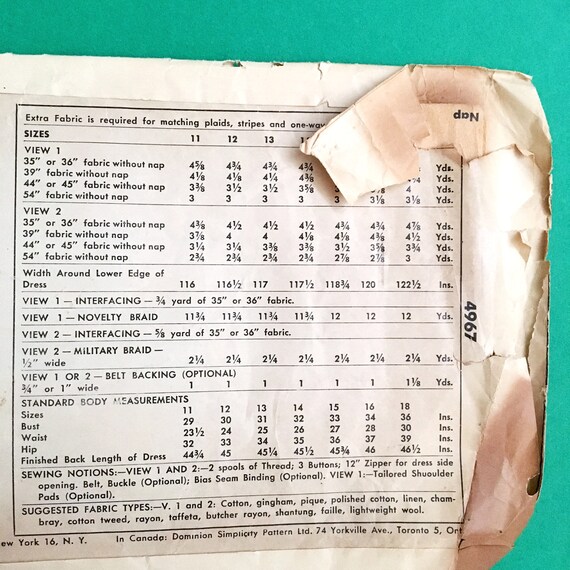 Nap
Extra Fabric is required for matching plaids, stripes and one-way
SIZES 11 12 13
VIEW 1
35" or 36" fabric without nap 4⅝ 4¾ 4¾ 4¾ Yds.
39" fabric without nap 4⅛ 4⅛ 4¼ 4⅜ Yds.
44" or 45" fabric without nap 3⅜ 3½ 3½ 3⅝ Yds.
54" fabric without nap 3 3 3 3 3 3⅛ 3⅛ Yds.
VIEW 2
35" or 36" fabric without nap 4⅜ 4½ 4½ 4½ 4¾ 4¾ 4⅞ Yds.
39" fabric without nap 3⅞ 4 4 4⅛ 4⅛ 4⅜ 4½ Yds.
44" or 45" fabric without nap 3¼ 3¼ 3⅜ 3⅜ 3½ 3⅝ 3¾ Yds.
54" fabric without nap 2¾ 2¾ 2¾ 2¾ 2⅞ 2⅞ 3 Yds.
Width Around Lower Edge of
Dress 116 116½ 117 117½ 118¾ 120 122½ Ins.
VIEW 1 — INTERFACING — ¾ yard of 35" or 36" fabric.
VIEW 1 — NOVELTY BRAID 11¾ 11¾ 11¾ 11¾ 12 12 12 Yds.
VIEW 2 — INTERFACING — ⅝ yard of 35" or 36" fabric.
VIEW 2 — MILITARY BRAID —
½" wide 2¼ 2¼ 2¼ 2¼ 2¼ 2¼ 2¼ Yds.
VIEW 1 OR 2 — BELT BACKING (OPTIONAL)
¾" or 1" wide 1 1 1 1 1 1 1⅛ Yds.
STANDARD BODY MEASUREMENTS
Sizes 11 12 13 14 15 16 18
Bust 29 30 31 32 33 34 36 Ins.
Waist 23½ 24 25 26 27 28 30 Ins.
Hip 32 33 34 35 36 37 39 Ins.
Finished Back Length of Dress 44¾ 45 45¼ 45½ 45¾ 46 46½ Ins.
SEWING NOTIONS:—VIEW 1 AND 2:—2 spools of Thread; 3 Buttons; 12" Zipper for dress side
opening. Belt, Buckle (Optional); Bias Seam Binding (Optional). VIEW 1:—Tailored Shuoulder
Pads (Optional).
SUGGESTED FABRIC TYPES:—V. 1 and 2: Cotton, gingham, pique, polished cotton, linen, cham-
bray, cotton tweed, rayon, taffeta, butcher rayon, shantung, faille, lightweight wool.
ew York 16, N. Y. In Canada: Dominion Simplicity Pattern Ltd. 74 Yorkville Ave., Toronto 5, Ont
4967